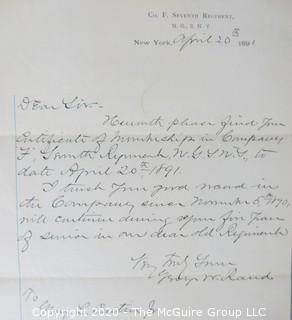 Co. F. Seventh Regiment,
N. G., S. N. Y.
New York, April 20th 1891
Dear Sir-
Herewith please find your
Certificate of Membership in Company
F, Seventh Regiment, N.G.S.N.Y., to
date April 20th 1891.
I trust your good record in
the Company since November 5th 1870,
will continue during your five years
of service in our dear old Regiment
Very Truly Yours
George W. Rand
To
Copyright © 2020 - The McGuire Group LLC